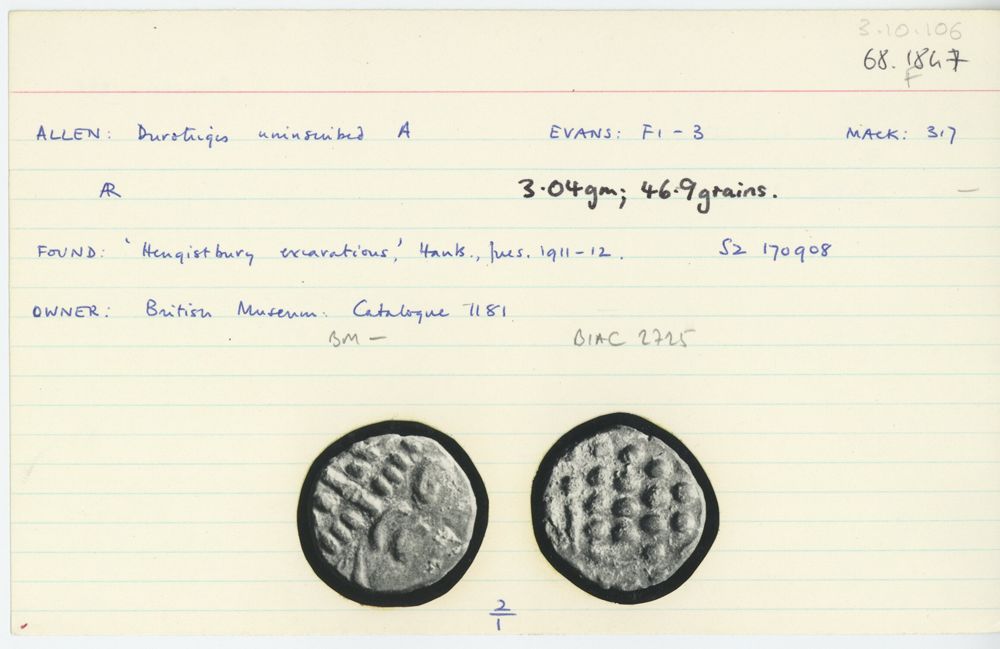 3.10.106
68.1847
F
ALLEN: Durotriges uninscribed A EVANS: F1-3 MACK: 317
AR 3.04gm; 46.9grains. —
FOUND: 'Hengistbury excavations,' Hants., pres. 1911-12. SZ 170908
OWNER: British Museum. Catalogue 1181
BM — BIAC 2725
2
1